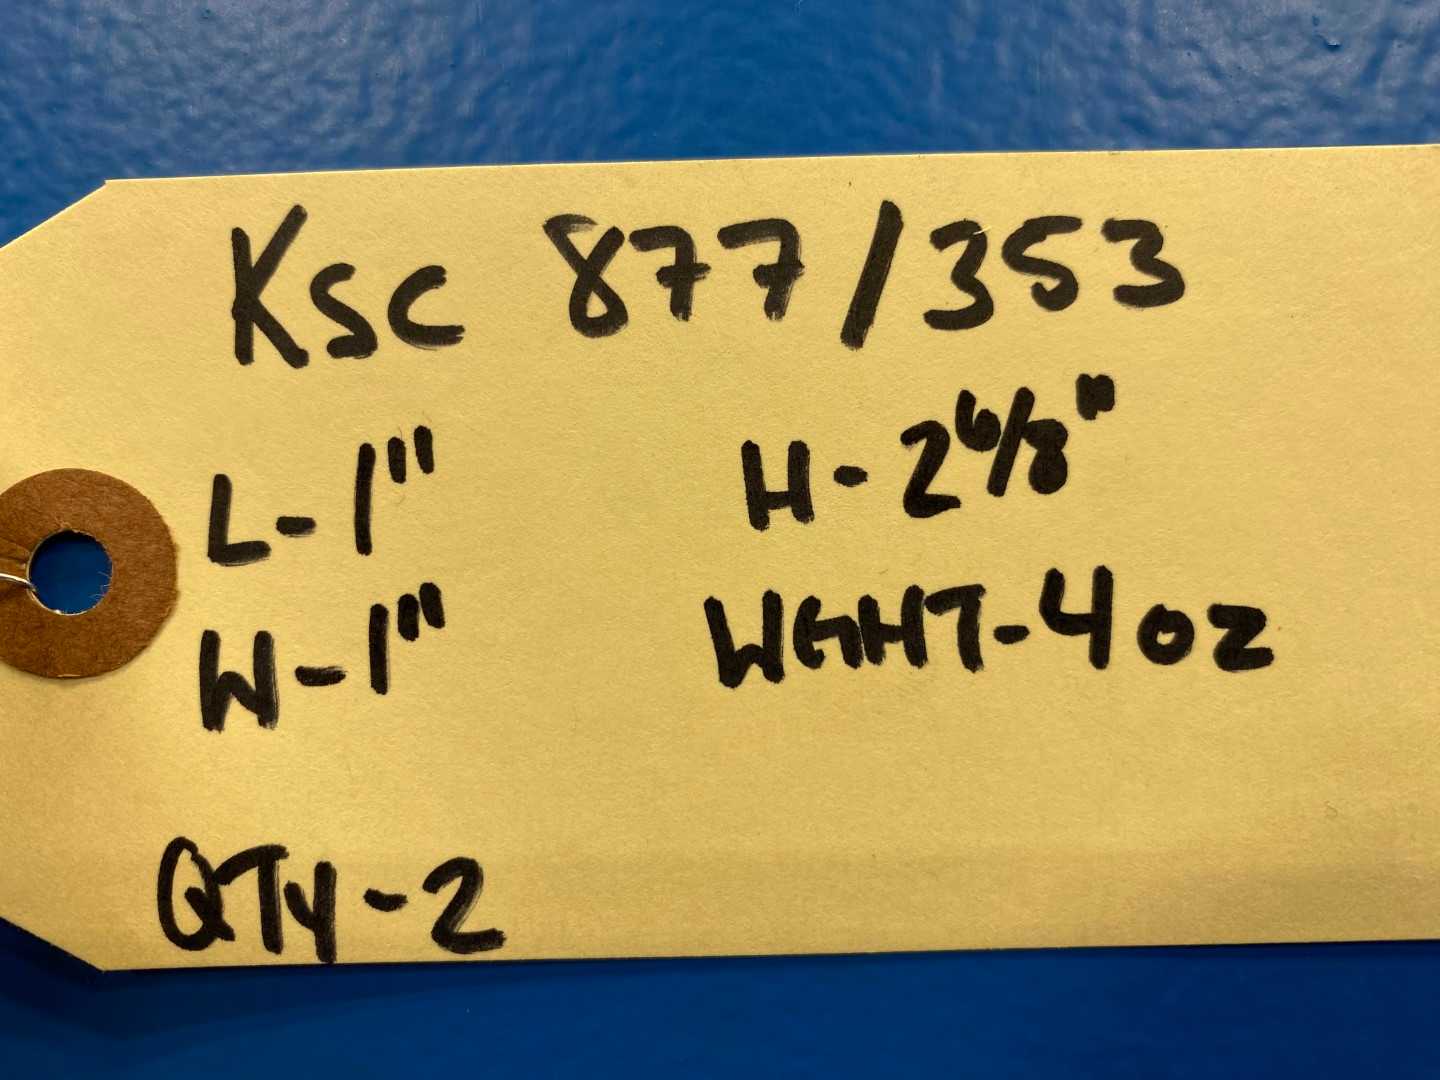 KSC 877/353
L-1" H-2 6/8"
W-1" WGHT-4 oz
QTy-2